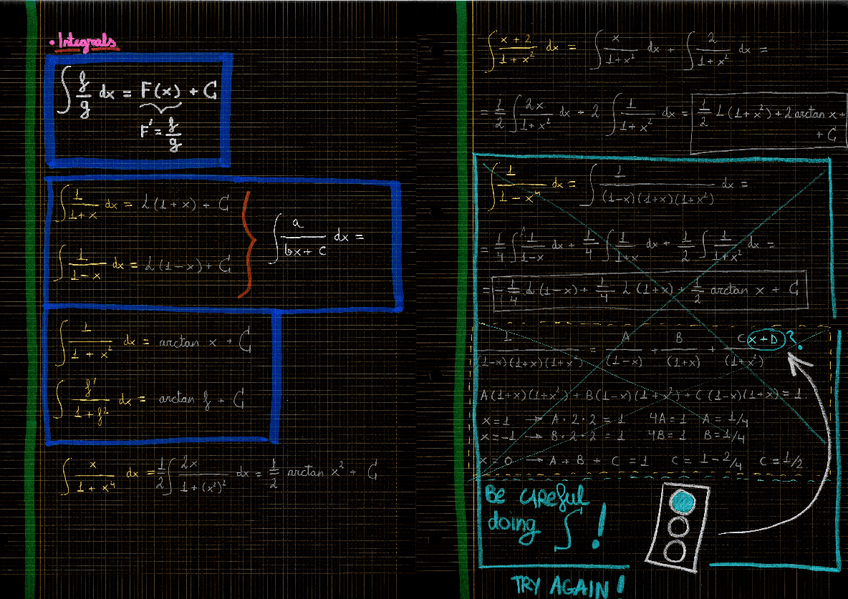 • Integrals
∫ f/g dx = F(x) + C
F' = f/g
∫ 1/(1+x) dx = L(1+x) + C
∫ 1/(1-x) dx = L(1-x) + C
∫ a/(bx+c) dx =
∫ 1/(1+x²) dx = arctan x + C
∫ f'/(1+f²) dx = arctan f + C
∫ x/(1+x⁴) dx = 1/2 ∫ 2x/(1+(x²)²) dx = 1/2 arctan x² + C
∫ (x+2)/(1+x²) dx = ∫ x/(1+x²) dx + ∫ 2/(1+x²) dx =
= 1/2 ∫ 2x/(1+x²) dx + 2 ∫ 1/(1+x²) dx = 1/2 L(1+x²) + 2 arctan x +
+ C
∫ 1/(1-x⁴) dx = ∫ 1/((1-x)(1+x)(1+x²)) dx =
= 1/4 ∫ 1/(1-x) dx + 1/4 ∫ 1/(1+x) dx + 1/2 ∫ 1/(1+x²) dx =
= -1/4 L(1-x) + 1/4 L(1+x) + 1/2 arctan x + C
1/((1-x)(1+x)(1+x²)) = A/(1-x) + B/(1+x) + (Cx+D)/(1+x²) ?
A(1+x)(1+x²) + B(1-x)(1+x²) + C(1-x)(1+x) = 1
x=1 → A·2·2 = 1 4A=1 A=1/4
x=-1 → B·2·2 = 1 4B=1 B=1/4
x=0 → A+B+C=1 C=1-2/4 C=1/2
Be careful
doing ∫ !
TRY AGAIN!